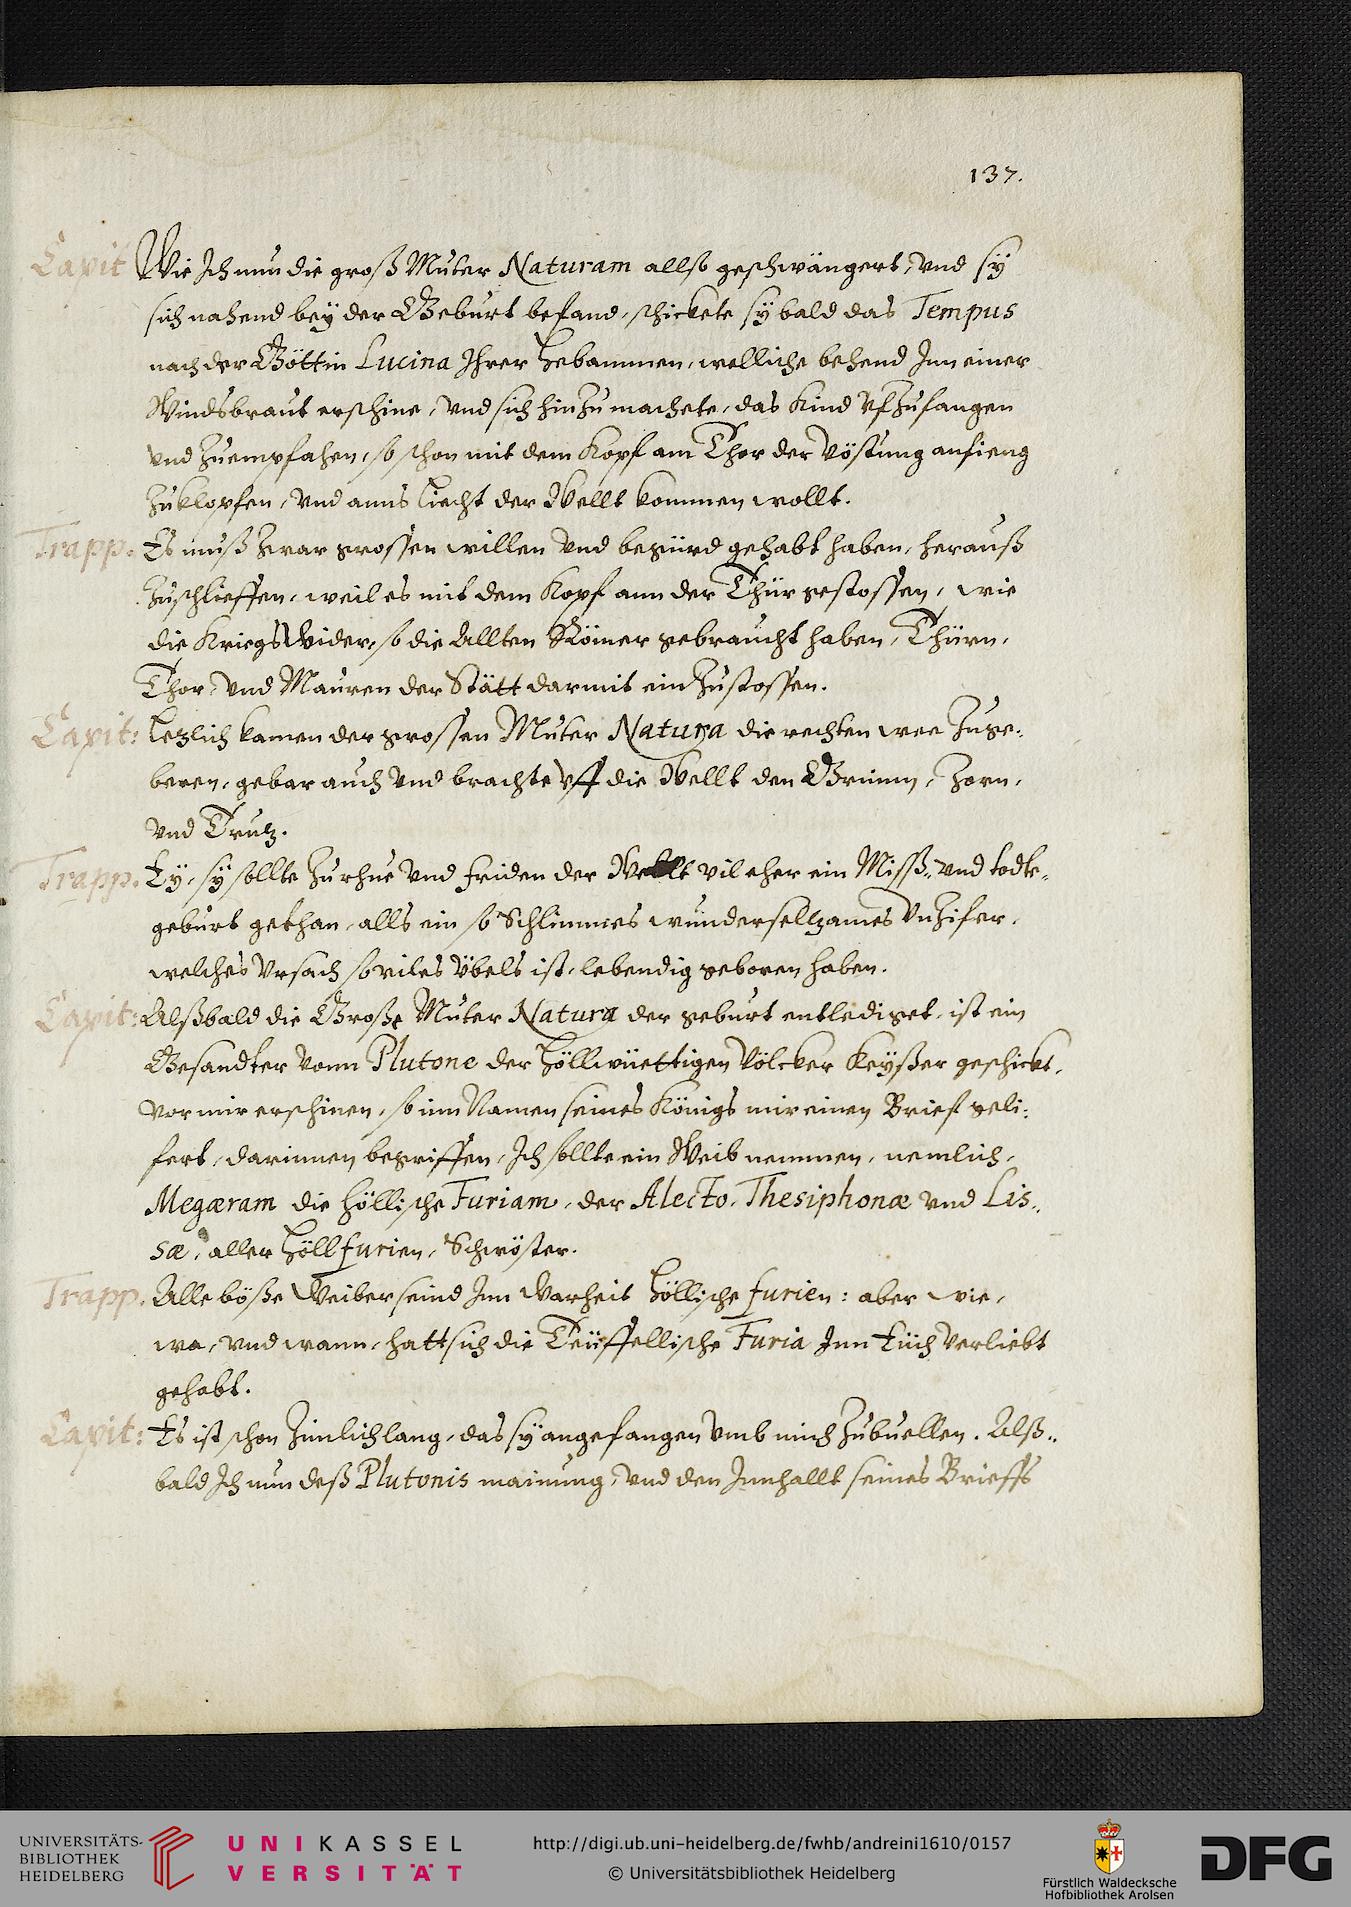 137.
Capit Wie Ich nun die groß Muter Naturam allso geschwängert, vnd sy
sich nahend bey der Geburt befand, schickete sy bald das Tempus
nach der Göttin Lucina Ihrer Hebammen, welliche behend Inn einer
Windsbraut erschine, vnd sich hinzu machete, das Kind vfzufangen
vnd zuempfahen, so schon mit dem Kopf am Thor der Vöstung anfieng
zuklopfen, vnd anns Liecht der Wellt kommen wollt.
Trapp. Es muß zwar grossen willen vnd begürd gehabt haben, herauß
zuschlieffen, weil es mit dem Kopf ann der Thür gestossen, wie
die KriegsWider, so die Allten Römer gebraucht haben, Thürn,
Thor, vnd Mauren der Stätt darmit ein zustossen.
Capit: Letzlich kamen der grossen Muter Natura die rechten wee zuge-
beren, gebar auch vnd brachte vff die Wellt den Grimm, Zorn,
vnd Trutz.
Trapp. Ey, sy sollte zu rhue vnd friden der Wellt vil eher ein Miss- vnd todte-
geburt gethan, alls ein so Schlimmes wunderselltzames Vnzifer,
welches Vrsach so viles übels ist, lebendig geboren haben.
Capit: Alßbald die Große Muter Natura der geburt entlediget, ist ein
Gesandter vonn Plutone der Höllwüettigen Völcker Keyßer geschickt,
vor mir erschinen, so inn Namen seines Königs mir einen Brief geli-
fert, darinnen begriffen, Ich sollte ein Weib nemmen, nemlich,
Megæram die höllische Furiam, der Alecto, Thesiphonæ vnd Lis-
sæ, aller Höllfurien, Schwöster.
Trapp. Alle böße Weiber seind Inn Warheit Höllische furien: aber wie,
wa, vnd wann, hatt sich die Teüffellische Furia Inn Eüch verliebt
gehabt.
Capit: Es ist schon zimlich lang, das sy angefangen vmb mich zubuellen. Alß-
bald Ich nun deß Plutonis mainung, vnd den Innhallt seines Brieffs
UNIVERSITÄTS-
BIBLIOTHEK
HEIDELBERG
UNIKASSEL
VERSITÄT
http://digi.ub.uni-heidelberg.de/fwhb/andreini1610/0157
© Universitätsbibliothek Heidelberg
Fürstlich Waldecksche
Hofbibliothek Arolsen
DFG